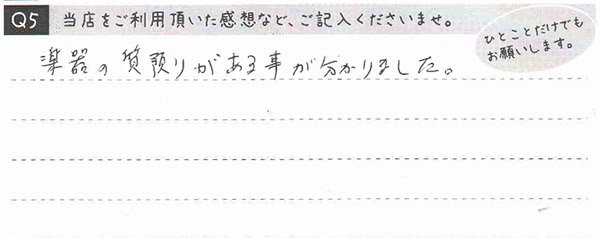 Q5 当店をご利用頂いた感想など、ご記入くださいませ。
ひとことだけでも
お願いします。
楽器の質預りがある事が分かりました。